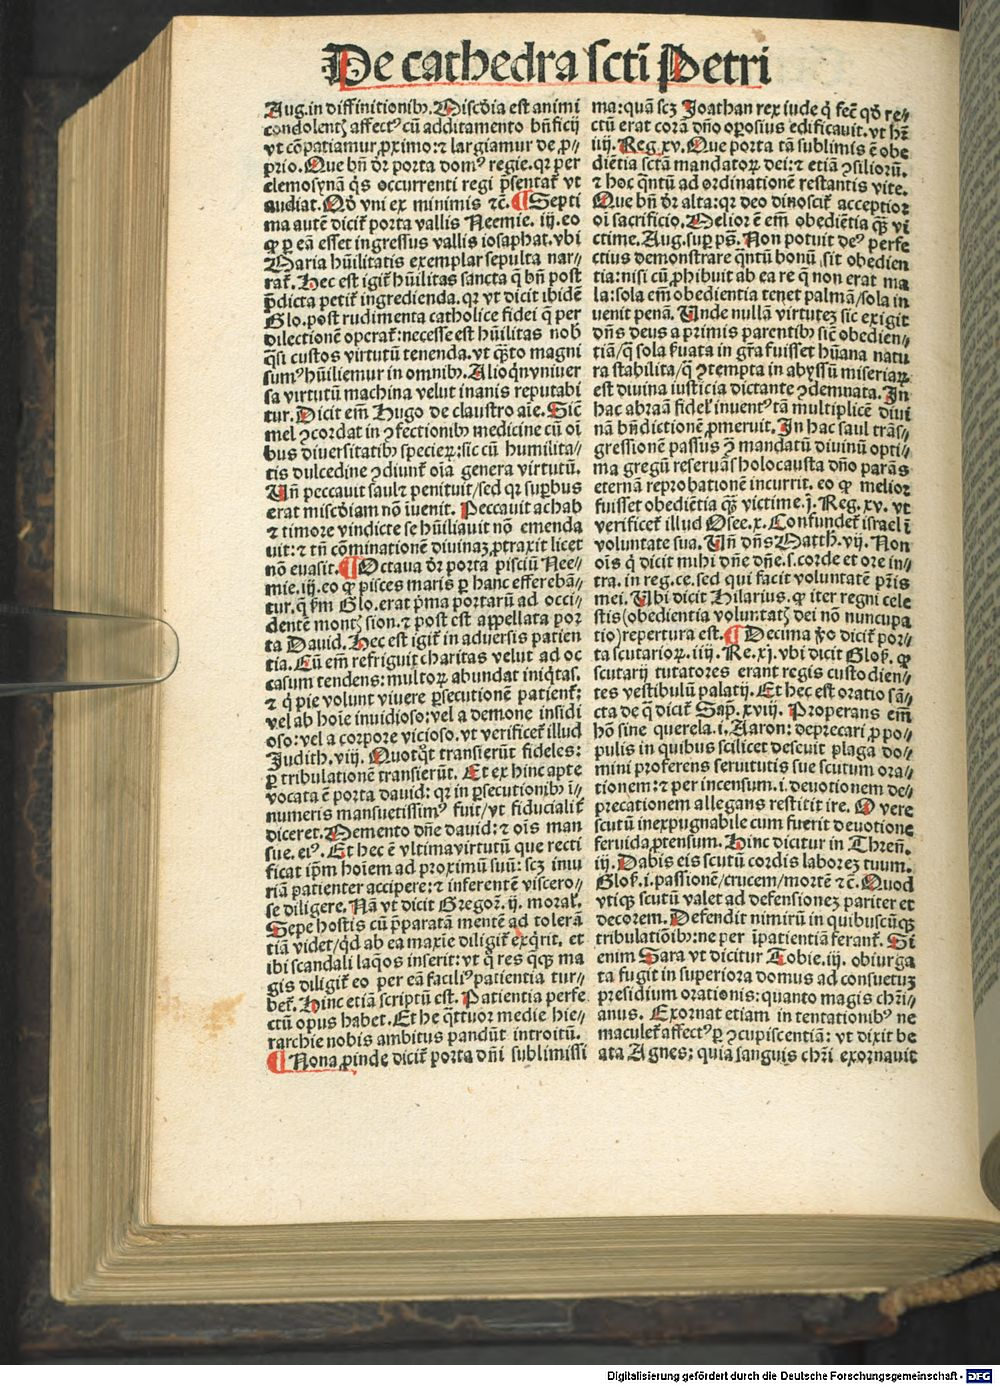 De cathedra scti Petri
Aug. in diffinitionibꝰ. Miscdia est animi
condolentꝭ affectꝰ cū additamento bn̄ficij
vt cōpatiamur ꝓximo: ⁊ largiamur de ꝓ⸗
prio. Que bn̄ dr̄ porta domꝰ regie. qꝛ per
elemosynā q̄s occurrenti regi p̄sentat̄ vt
audiat. Qd̓ vni ex minimis ⁊c̄. ¶ Septi
ma autē dicit̄ porta vallis Neemie. iij. eo
ꝙ ꝑ eā esset ingressus vallis iosaphat. vbi
Maria hūilitatis exemplar sepulta nar⸗
rat̄. Hec est igit̄ hūilitas sancta q̄ bn̄ post
p̄dicta petit̄ ingredienda. qꝛ vt dicit ibidē
Glo. post rudimenta catholice fidei q̄ per
dilectionē operat̄: necesse est hūilitas nob̄
q̄si custos virtutū tenenda. vt q̄̄to magni
sumꝰ hūiliemur in omnibꝰ. Alioqn̄ vniuer
sa virtutū machina velut inanis reputabi
tur. Dicit em̄ Hugo de claustro aīe. Sic̄
mel ꝯcordat in ꝯfectionibꝰ medicine cū oī
bus diuersitatibꝰ specieꝝ: sic cū humilita⸗
tis dulcedine ꝯdiunt̄ oīa genera virtutū.
Un̄ peccauit saul ⁊ penituit/ sed qꝛ suꝑbus
erat miscdiam nō iuenit. Peccauit achab
⁊ timore vindicte se hūiliauit nō emenda
uit: ⁊ tn̄ cōminationē diuinaꝫ ꝓtraxit licet
nō euasit. ¶ Octaua dr̄ porta pisciū Nee⸗
mie. iij. eo ꝙ pisces maris ꝑ hanc efferebā⸗
tur. q̄ ẜm Glo. erat p̄ma portarū ad occi⸗
dentē montꝭ sion. ⁊ post est appellata por
ta Dauid. Hec est igit̄ in aduersis patien
tia. Cū em̄ refriguit charitas velut ad oc
casum tendens: multoꝝ abundat iniq̄tas.
⁊ q̄ pie volunt viuere ꝑsecutionē patient̄:
vel ab hoīe inuidioso: vel a demone insidi
oso: vel a corpore vicioso. vt verificet̄ illud
Judith. viij. Quotq̄t transierūt fideles:
ꝑ tribulationē transierūt. Et ex hinc apte
vocata ē porta dauid: qꝛ in ꝑsecutionibꝰ ī⸗
numeris mansuetissimꝰ fuit/ vt fiducialit̄
diceret. Memento dn̄e dauid: ⁊ oīs man
sue. eiꝰ. Et hec ē vltima virtutū que recti
ficat ip̄m hoīem ad proximū suū: scꝫ iniu
riā patienter accipere: ⁊ inferentē viscero⸗
se diligere. Nā vt dicit Gregoꝛ. ij. moral̄.
Sepe hostis cū p̄paratā mentē ad tolerā
tiā videt/ qd̓ ab ea maxīe diligit̄ exq̄rit. et
ibi scandali laq̄os inserit: vt q̄ res q̄qꝫ ma
gis diligit̄ eo per eā faciliꝰ patientia tur⸗
bet̄. Hinc etiā scriptū est. Patientia perfe
ctū opus habet. Et he q̄ttuor medie hie⸗
rarchie nobis ambitus pandūt introitū.
¶ Nona ꝓinde dicit̄ porta dn̄i sublimissi
ma: quā scꝫ Joathan rex iude q̄ fec̄ qd̓ re⸗
ctū erat corā dn̄o oꝑosius edificauit. vt hr̄
iiij. Reg. xv. Que porta tā sublimis ē obe
diētia sctā mandatoꝝ dei: ⁊ etiā ꝯsiliorū.
⁊ hoc q̄ntū ad ordinationē restantis vite.
Que bn̄ dr̄ alta: qꝛ deo dinoscit̄ acceptioꝛ
oī sacrificio. Melior ē em̄ obediētia qꝫ̄ vi
ctime. Aug. suꝑ ps̄. Non potuit deꝰ perfe
ctius demonstrare q̄ntū bonū sit obedien
tia: nisi cū ꝓhibuit ab ea re q̄ non erat ma
la: sola em̄ obedientia tenet palmā/ sola in
uenit penā. Unde nullā virtuteꝫ sic exigit
dn̄s deus a primis parentibꝰ sic̄ obedien⸗
tiā/ q̄ sola ẜuata in gr̄a fuisset hūana natu
ra stabilita/ q̄ ꝯtempta in abyssū miseriaꝝ
est diuina iusticia dictante ꝯdemnata. In
hac abraā fidel̄ inuentꝰ tā multiplicē diui
nā bn̄dictionē ꝓmeruit. In hac saul trās⸗
gressionē passus ꝯ̄ mandatū diuinū opti⸗
ma gregū reseruās holocausta dn̄o parās
eternā reprobationē incurrit. eo ꝙ melior
fuisset obediētia qꝫ̄ victime. j. Reg. xv. vt
verificet̄ illud Osee. x. Confundet̄ israel ī
voluntate sua. Un̄ dn̄s Matth. vij. Non
oīs q̄ dicit mihi dn̄e dn̄e. s. corde et ore in⸗
tra. in reg. ce. sed qui facit voluntatē pr̄is
mei. Ubi dicit Hilarius. ꝙ iter regni cele
stis (obedientia voluntatꝭ dei nō nuncupa
tio) repertura est. ¶ Decima v̓o dicit̄ por⸗
ta scutarioꝝ. iiij. Re. xj. vbi dicit Glos̄. ꝙ
scutarij tutatores erant regis custodien⸗
tes vestibulū palatij. Et hec est oratio sā⸗
cta de q̄ dicit̄ Sap̄. xviij. Properans em̄
hō sine querela. i. Aaron: deprecari ꝓ po⸗
pulis in quibus scilicet deseuit plaga do⸗
mini proferens seruitutis sue scutum ora⸗
tionem: ⁊ per incensum. i. deuotionem de⸗
precationem allegans restitit ire. O vere
scutū inexpugnabile cum fuerit deuotione
feruida ꝓtensum. Hinc dicitur in Thren̄.
iij. Dabis eis scutū cordis laboreꝫ tuum.
Glos̄. i. passionē/ crucem/ mortē ⁊c̄. Quod
vtiqꝫ scutū valet ad defensioneꝫ pariter et
decorem. Defendit nimirū in quibuscūqꝫ
tribulatiōibꝰ: ne per īpatientiā ferant̄. Si
enim Sara vt dicitur Tobie. iij. obiurga
ta fugit in superiora domus ad consuetuꝫ
presidium orationis: quanto magis chr̄i⸗
anus. Exornat etiam in tentationibꝰ ne
maculet̄ affectꝰ ꝑ ꝯcupiscentiā: vt dixit be
ata Agnes; quia sanguis chr̄i exornauit
Digitalisierung gefördert durch die Deutsche Forschungsgemeinschaft - DFG